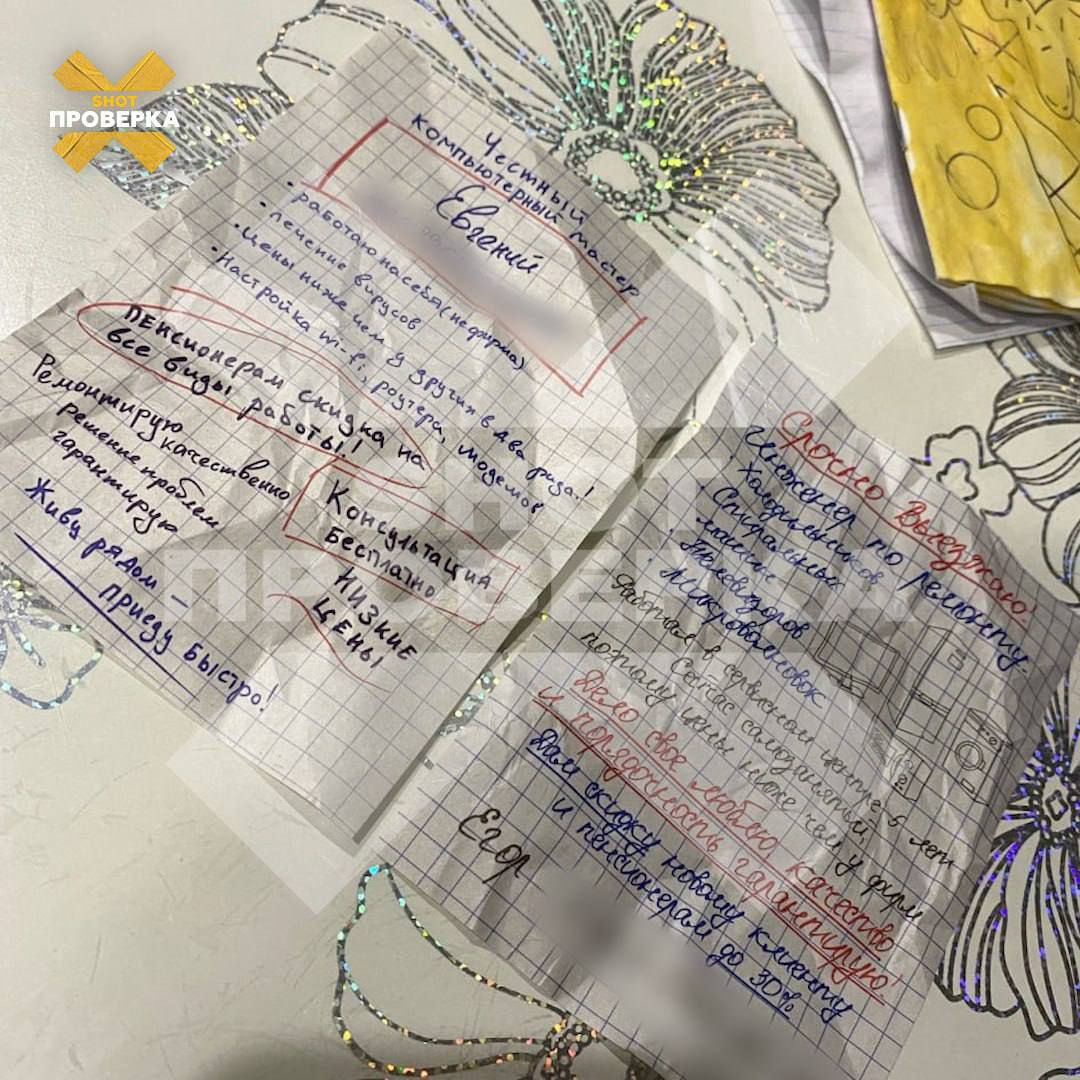 SHOT
ПРОВЕРКА
Честный
компьютерный мастер
Евгений
· работаю на себя (не фирма)
· лечение вирусов
· Цены ниже чем у других в два раза!
· Настройка wi-fi, роутера, модемов
Пенсионерам скидка на
все виды работы!
Ремонтирую
качественно
Решение проблем
гарантирую
Консультация
Бесплатно
Низкие
цены
Живу рядом –
приеду быстро!
Срочно Выезжаю!
Инженер по ремонту
· Холодильников
· Стиральных
машин
· Телевизоров
· Микроволновок
Работал в сервисном центре 5 лет
Сейчас самозанятый,
поэтому цены ниже чем у фирм
Дело свое люблю качество
и порядочность гарантирую!
Дам скидку новому клиенту
и пенсионерам до 30%
Егор
SHOT
ПРОВЕРКА